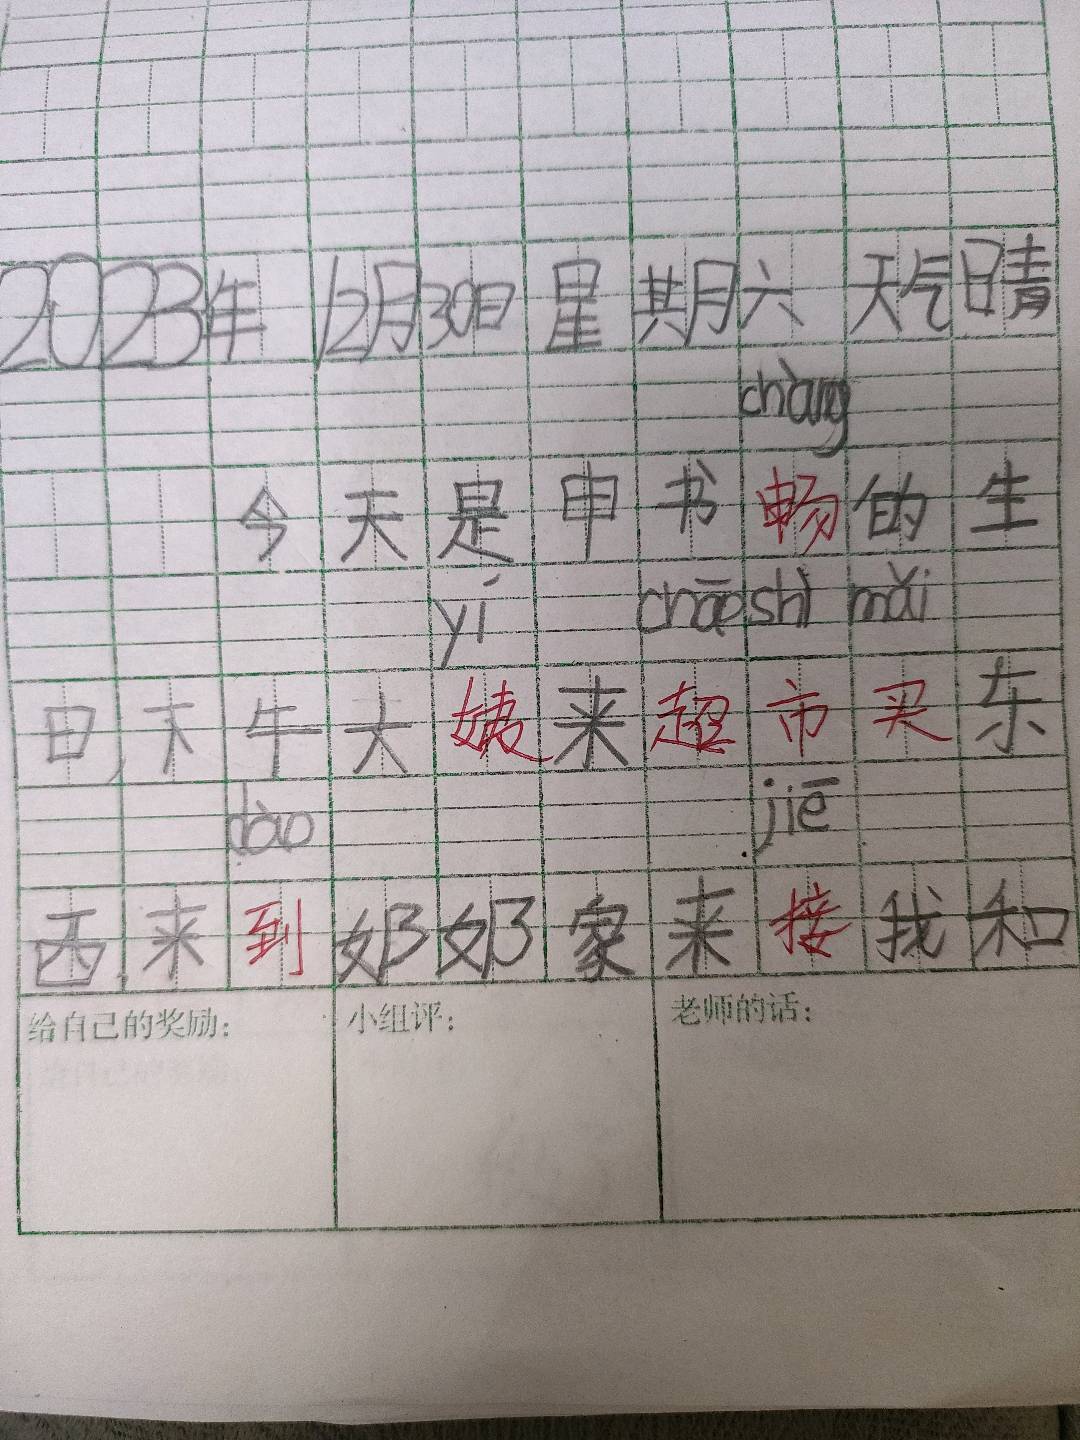 2023年 12月30日 星期六 天气晴
chàng
今天是申书畅的生
yí chāo shì mǎi
日,下午大姨来超市买东
dào jiē
西,来到奶奶家来接我和
给自己的奖励: 小组评: 老师的话: